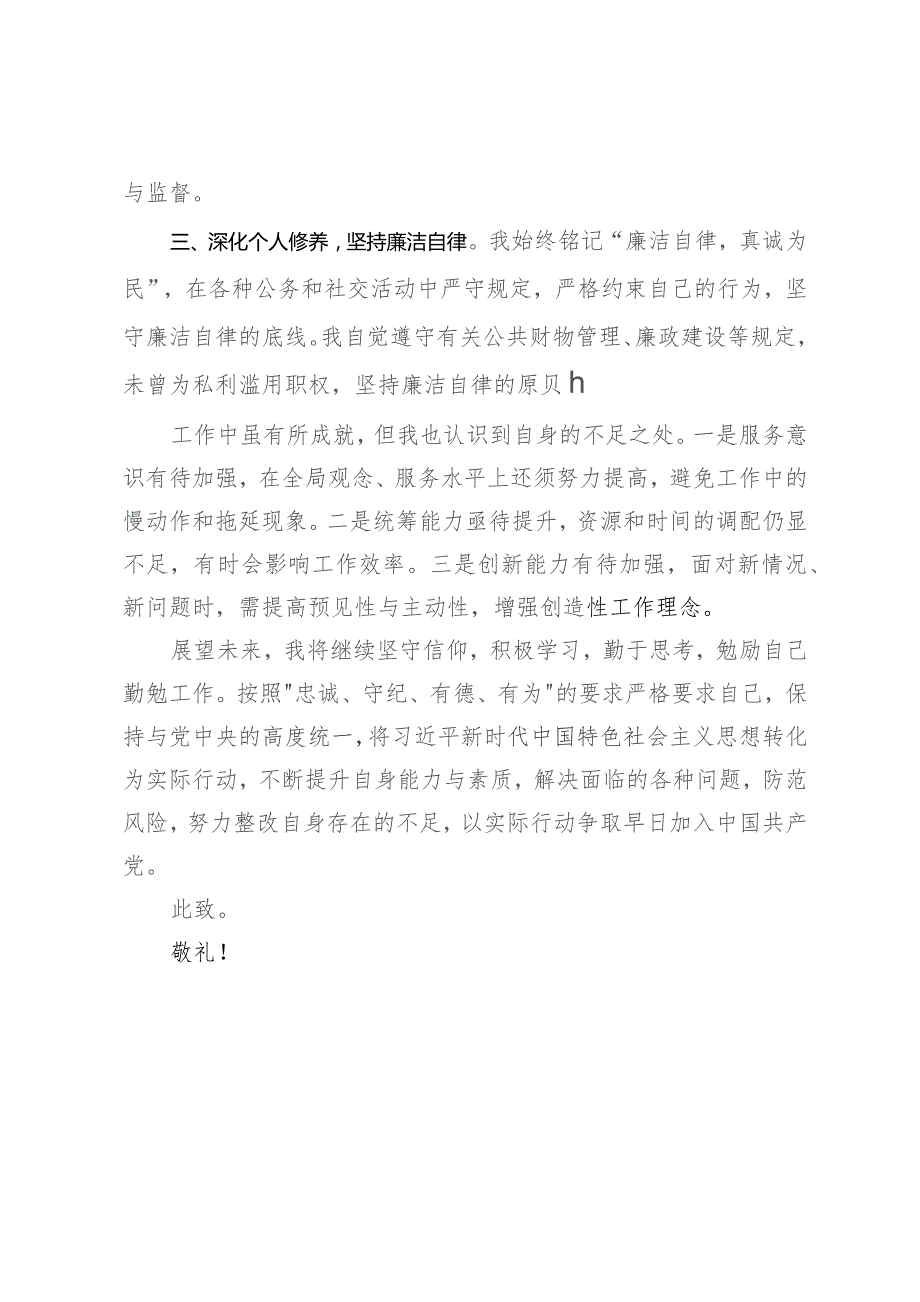 与监督。
三、深化个人修养，坚持廉洁自律。我始终铭记“廉洁自律，真诚为
民”，在各种公务和社交活动中严守规定，严格约束自己的行为，坚
守廉洁自律的底线。我自觉遵守有关公共财物管理、廉政建设等规定，
未曾为私利滥用职权，坚持廉洁自律的原贝h
工作中虽有所成就，但我也认识到自身的不足之处。一是服务意
识有待加强，在全局观念、服务水平上还须努力提高，避免工作中的
慢动作和拖延现象。二是统筹能力亟待提升，资源和时间的调配仍显
不足，有时会影响工作效率。三是创新能力有待加强，面对新情况、
新问题时，需提高预见性与主动性，增强创造性工作理念。
展望未来，我将继续坚守信仰，积极学习，勤于思考，勉励自己
勤勉工作。按照"忠诚、守纪、有德、有为"的要求严格要求自己，保
持与党中央的高度统一，将习近平新时代中国特色社会主义思想转化
为实际行动，不断提升自身能力与素质，解决面临的各种问题，防范
风险，努力整改自身存在的不足，以实际行动争取早日加入中国共产
党。
此致。
敬礼！